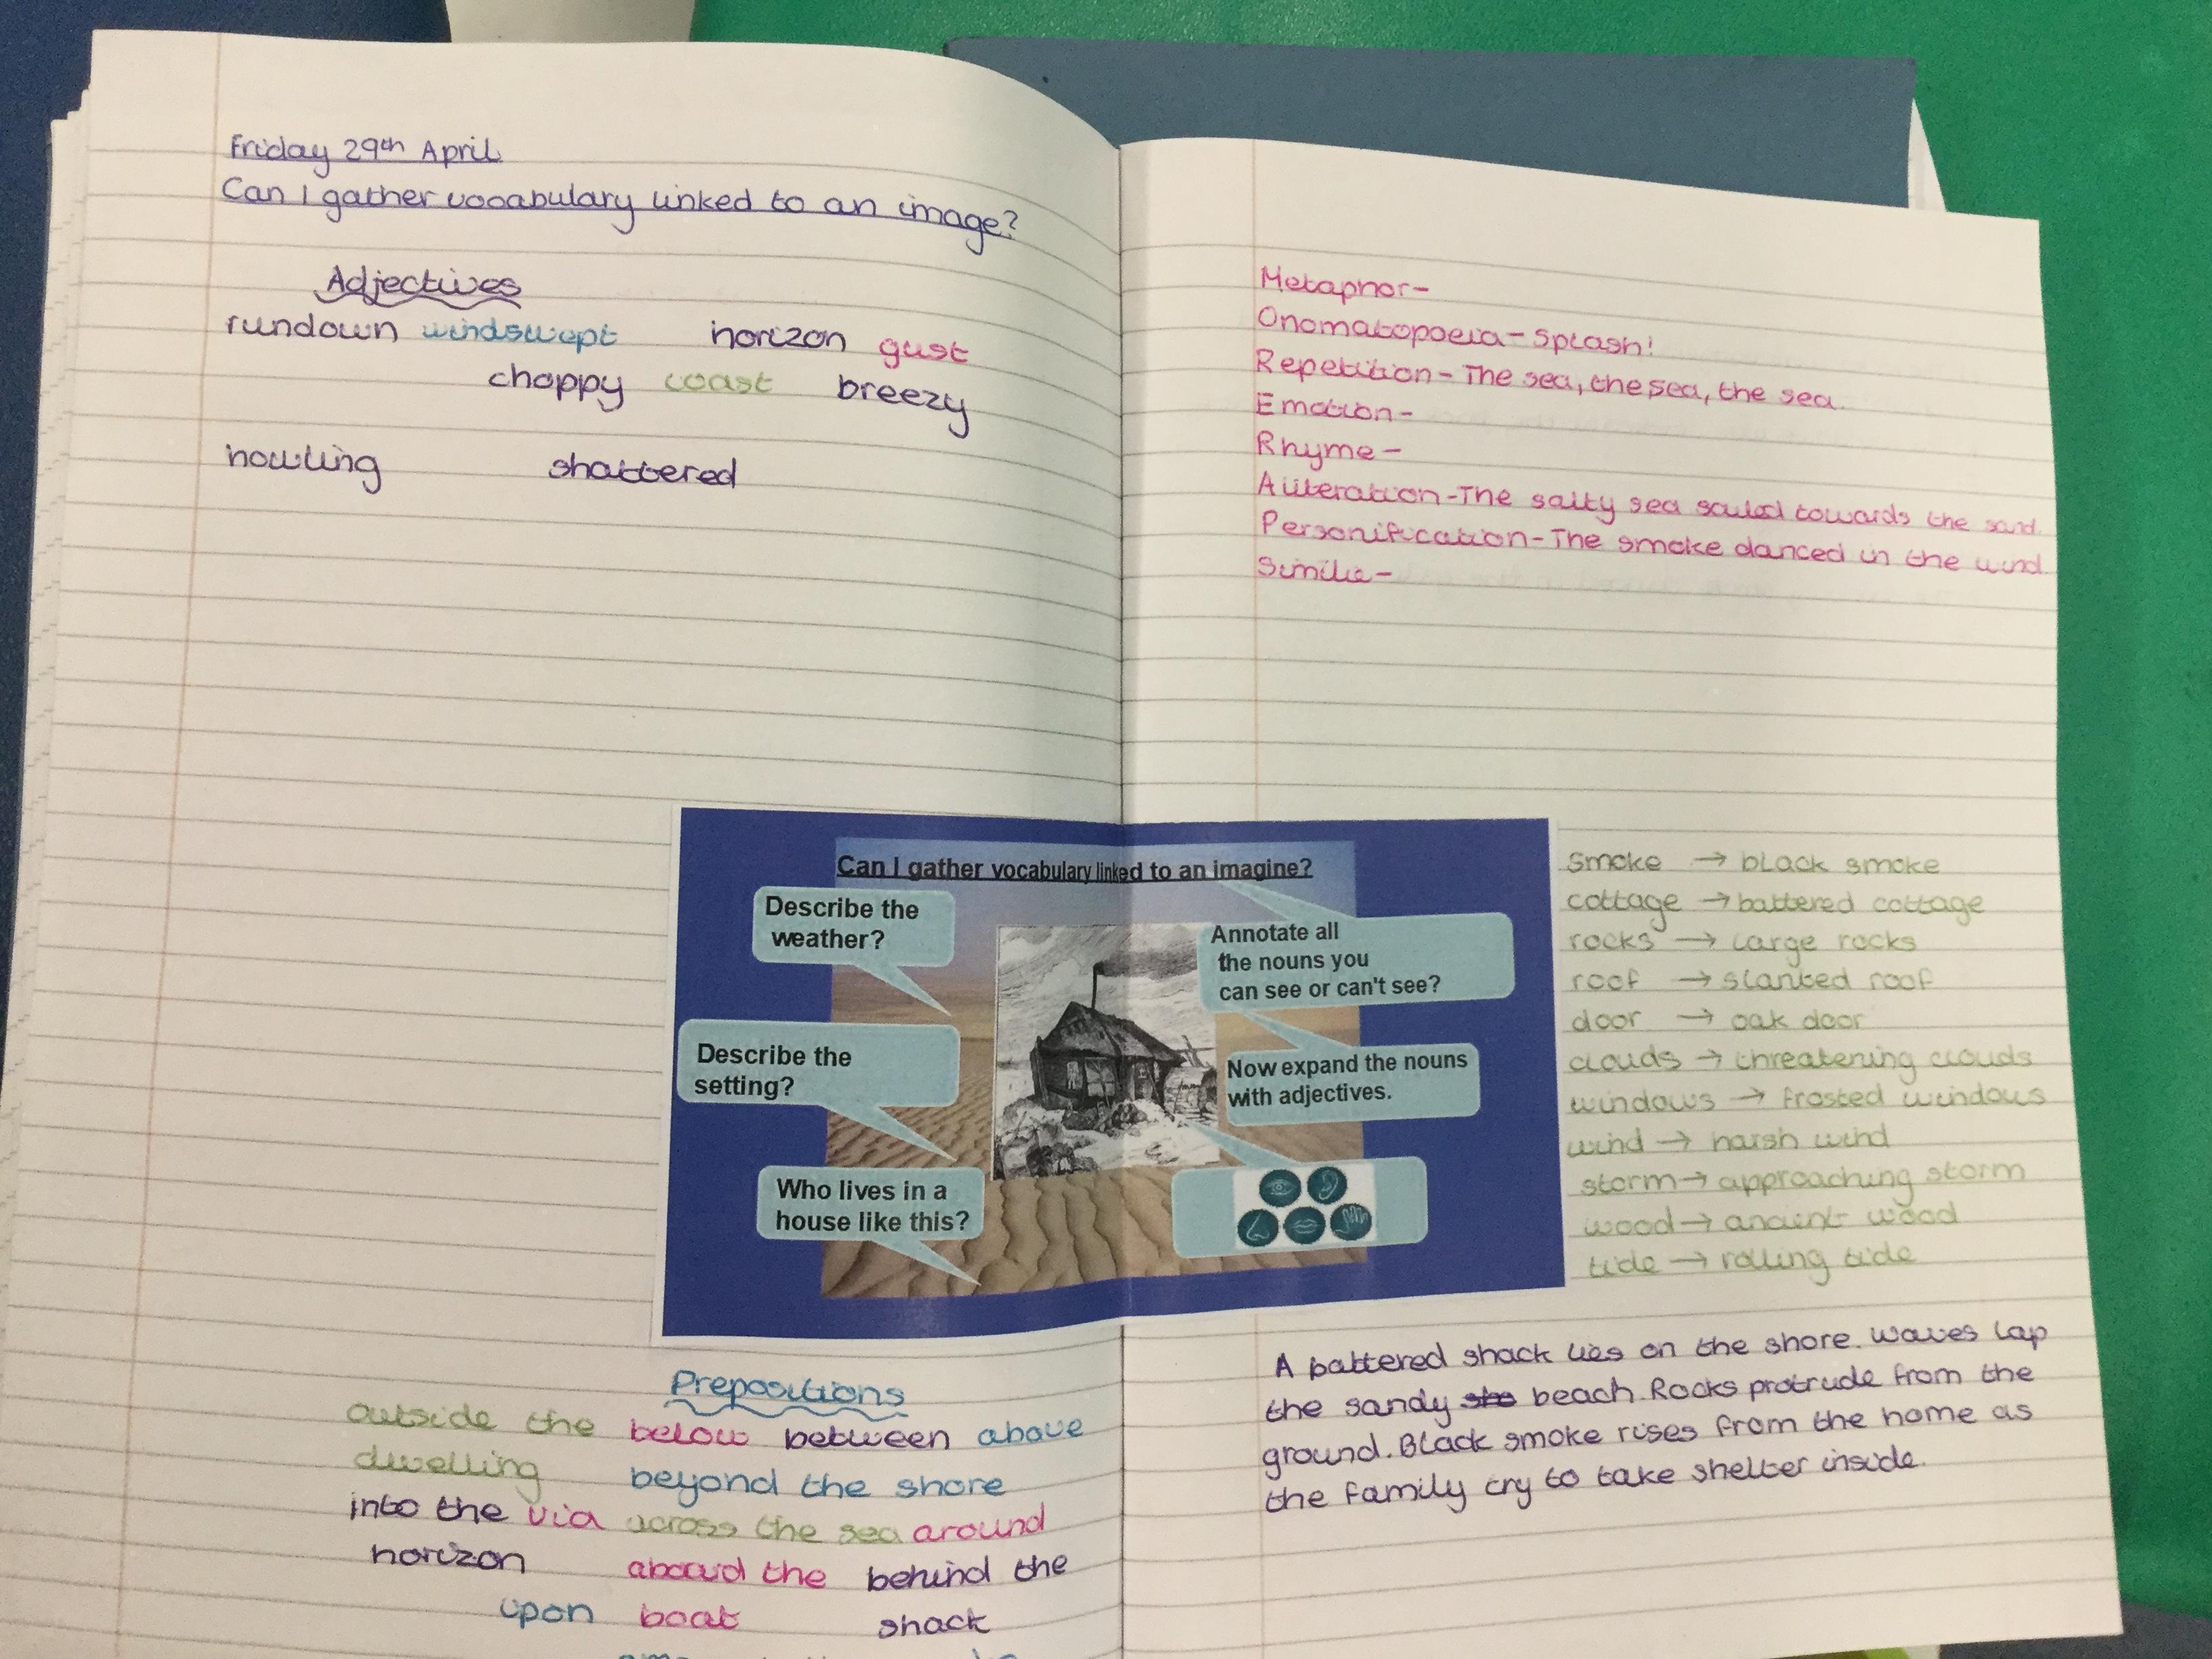 Friday 29th April
Can I gather vocabulary linked to an image?
Adjectives
rundown windswept horizon gust
choppy coast breezy
howling shattered
Metaphor-
Onomatopoeia - Splash!
Repetition - The sea, the sea, the sea.
Emotion-
Rhyme-
Aliteration - The salty sea sailed towards the sand.
Personification - The smoke danced in the wind
Similie-
Can I gather vocabulary linked to an imagine?
Describe the
weather?
Annotate all
the nouns you
can see or can't see?
Describe the
setting?
Now expand the nouns
with adjectives.
Who lives in a
house like this?
smoke → black smoke
cottage → battered cottage
rocks → large rocks
roof → slanted roof
door → oak door
clouds → threatening clouds
windows → frosted windows
wind → harsh wind
storm → approaching storm
wood → ancient wood
tide → rolling tide
Prepositions
outside the below between above
dwelling beyond the shore
into the via across the sea around
horizon aboard the behind the
upon boat shack
A battered shack lies on the shore. Waves lap
the sandy beach. Rocks protrude from the
ground. Black smoke rises from the home as
the family try to take shelter inside.